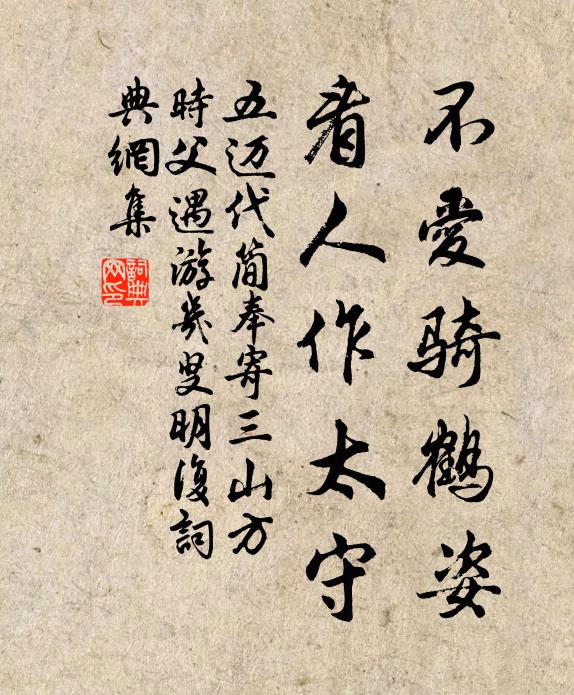 不愛騎鶴姿
看人作太守
五迈代简奉寄三山方
時父遇游幾叟明復詞
典網集
詞典
网印